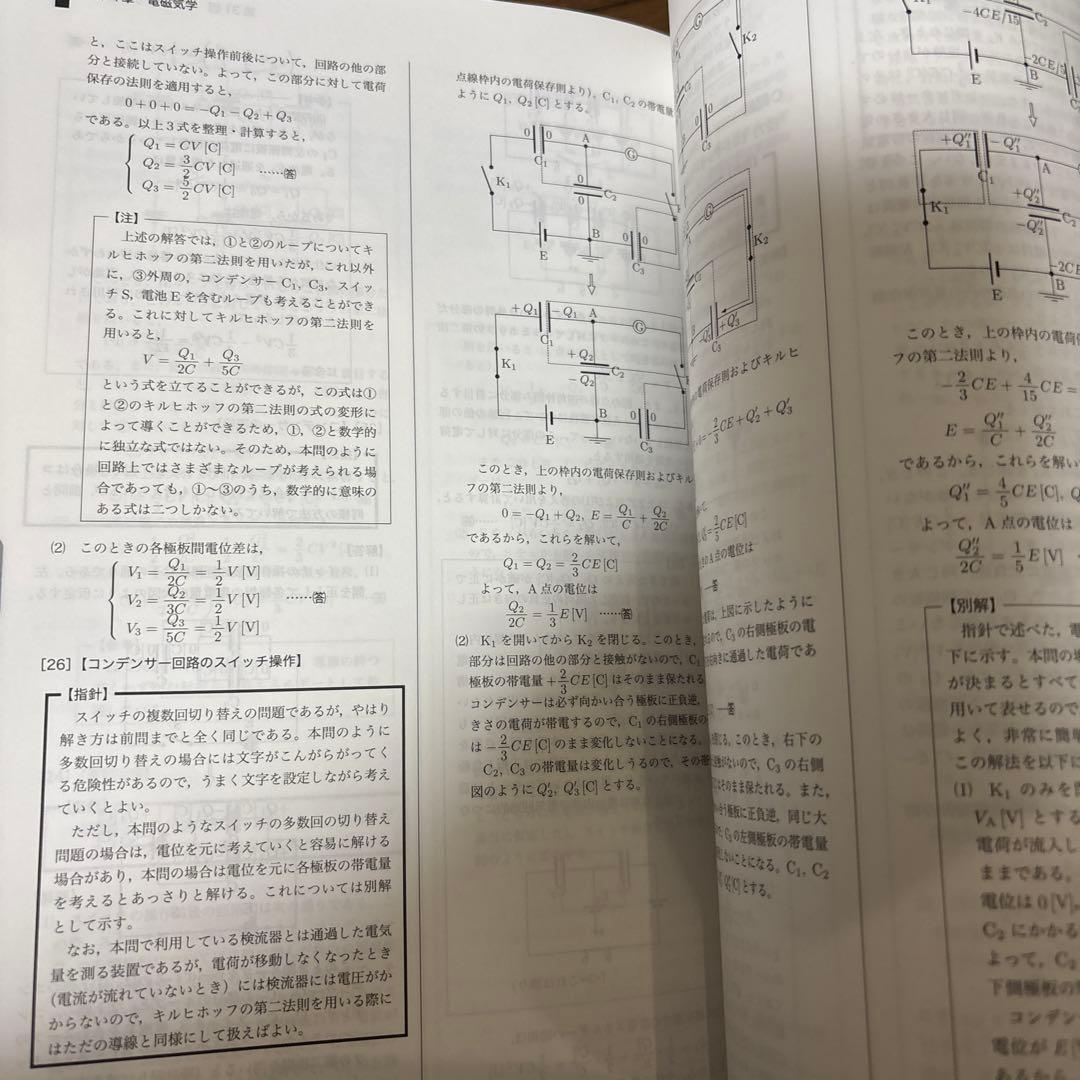 電磁気学
と，ここはスイッチ操作前後について，回路の他の部
分と接続していない。よって，この部分に対して電荷
保存の法則を適用すると，
0+0+0=-Q₁-Q₂+Q₃
である。以上3式を整理・計算すると，
Q₁=CV[C]
Q₂=3/2CV[C] ……㊫
Q₃=5/2CV[C]
【注】
上述の解答では，①と②のループについてキ
ルヒホッフの第二法則を用いたが，これ以外
に，③外周の，コンデンサー C₁, C₃，スイッ
チS，電池Eを含むループも考えることができ
る。これに対してキルヒホッフの第二法則を
用いると，
V=Q₁/2C+Q₃/5C
という式を立てることができるが，この式は①
と②のキルヒホッフの第二法則の式の変形に
よって導くことができるため，①，②と数学的
に独立な式ではない。そのため，本問のように
回路上ではさまざまなループが考えられる場
合であっても，①～③のうち，数学的に意味の
ある式は二つしかない。
(2) このときの各極板間電位差は，
V₁=Q₁/2C=1/2V[V]
V₂=Q₂/3C=1/2V[V] ……答
V₃=Q₃/5C=1/2V[V]
[26]【コンデンサー回路のスイッチ操作】
【指針】
スイッチの複数回切り替えの問題であるが，やはり
解き方は前問までと全く同じである。本問のように
多数回切り替えの場合には文字がこんがらがってく
る危険性があるので，うまく文字を設定しながら考え
ていくとよい。
ただし，本問のようなスイッチの多数回の切り替え
問題の場合は，電位を元に考えていくと容易に解ける
場合があり，本問の場合は電位を元に各極板の帯電量
を考えるとあっさりと解ける。これについては別解
として示す。
なお，本問で利用している検流器とは通過した電気
量を測る装置であるが，電荷が移動しなくなったとき
(電流が流れていないとき)には検流器には電圧がか
からないので，キルヒホッフの第二法則を用いる際に
はただの導線と同様にして扱えばよい。
点線枠内の電荷保存則より)，C₁, C₂の帯電量
ように Q₁, Q₂[C]とする。
0 0 A G
C₁
K₁ 0 C₂
0
B 0 0
E C₃
+Q₁ -Q₁ A G
C₁
+Q₂
K₁ C₂
-Q₂
B 0 0
E C₃
このとき，上の枠内の電荷保存則およびキル
フの第二法則より，
0=-Q₁+Q₂, E=Q₁/C+Q₂/2C
であるから，これらを解いて，
Q₁=Q₂=2/3CE[C]
よって，A点の電位は
Q₂/2C=1/3E[V] ……答
(2) K₁を開いてからK₂を閉じる。このとき，
部分は回路の他の部分と接触がないので，C₁
極板の帯電量+2/3CE[C]はそのまま保たれる
コンデンサーは必ず向かい合う極板に正負逆，
きさの電荷が帯電するので，C₁の右側極板の
は-2/3CE[C]のまま変化しないことになる。
C₂, C₃の帯電量は変化しうるので，その帯
図のように Q₂′, Q₃′[C]とする。
G
K₂
C₂
0
C₃
G
K₂
C₂
B +Q₃′
C₃
電荷保存則およびキルヒ
0=-2/3CE+Q₂′+Q₃′
のA点の電位は
答
は，上図に示したように
C₃の右側極板の電
向きに通過した電荷であ
答
このとき，右下の
がないので，C₃の右側
そのまま保たれる。また，
極板に正負逆，同じ大
C₃の左側極板の帯電量
しないことになる。C₁, C₂
[C]とする。
K₁ -4CE/15 C₂
E B
+Q₁″ -Q₁″ A
C₁
+Q₂″
C₂
K₁ -Q₂″
E B
このとき，上の枠内の電荷
フの第二法則より，
-2/3CE+4/15CE=
E=Q₁″/C+Q₂″/2C
であるから，これらを解い
Q₁″=4/5CE[C],
よって，A点の電位は
Q₂″/2C=1/5E[V]
【別解】
指針で述べた，電
下に示す。本問の場
が決まるとすべて
用いて表せるので
よく，非常に簡単
この解法を以下に
(1) K₁のみを閉
V_A[V]とする
電荷が流入し
ままである。
電位は0[V]，
C₂にかかる
よって，C₂
下側極板の
コンデン
電位がE[